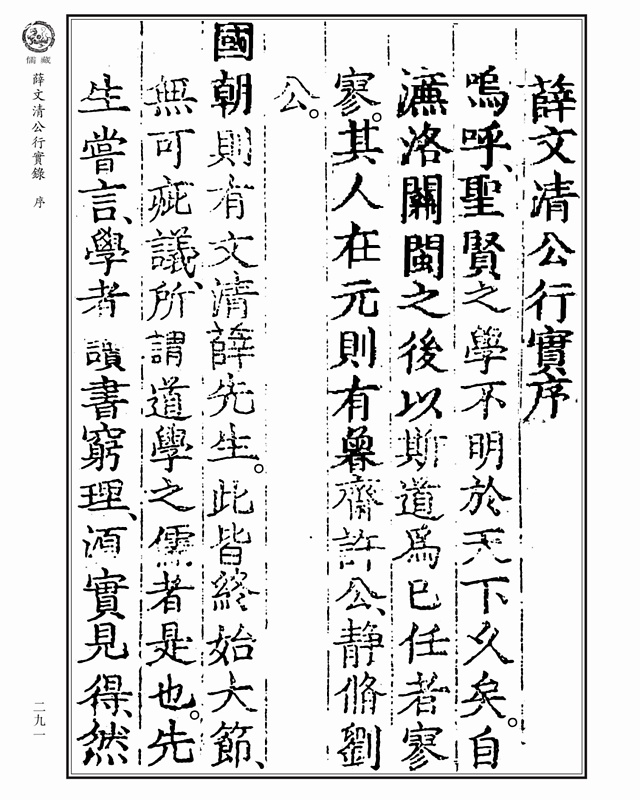 薛文清公行實序
嗚呼、聖賢之學不明於天下久矣。自
濂洛關閩之後以斯道爲已任者寥
寥。其人在元則有魯齋許公、靜脩劉
公。
國朝則有文清薛先生。此皆終始大節、
無可疵議、所謂道學之儒者是也。先
生嘗言、學者讀書窮理、湏實見得、然
儒藏
薛文清公行實錄 序
二九一